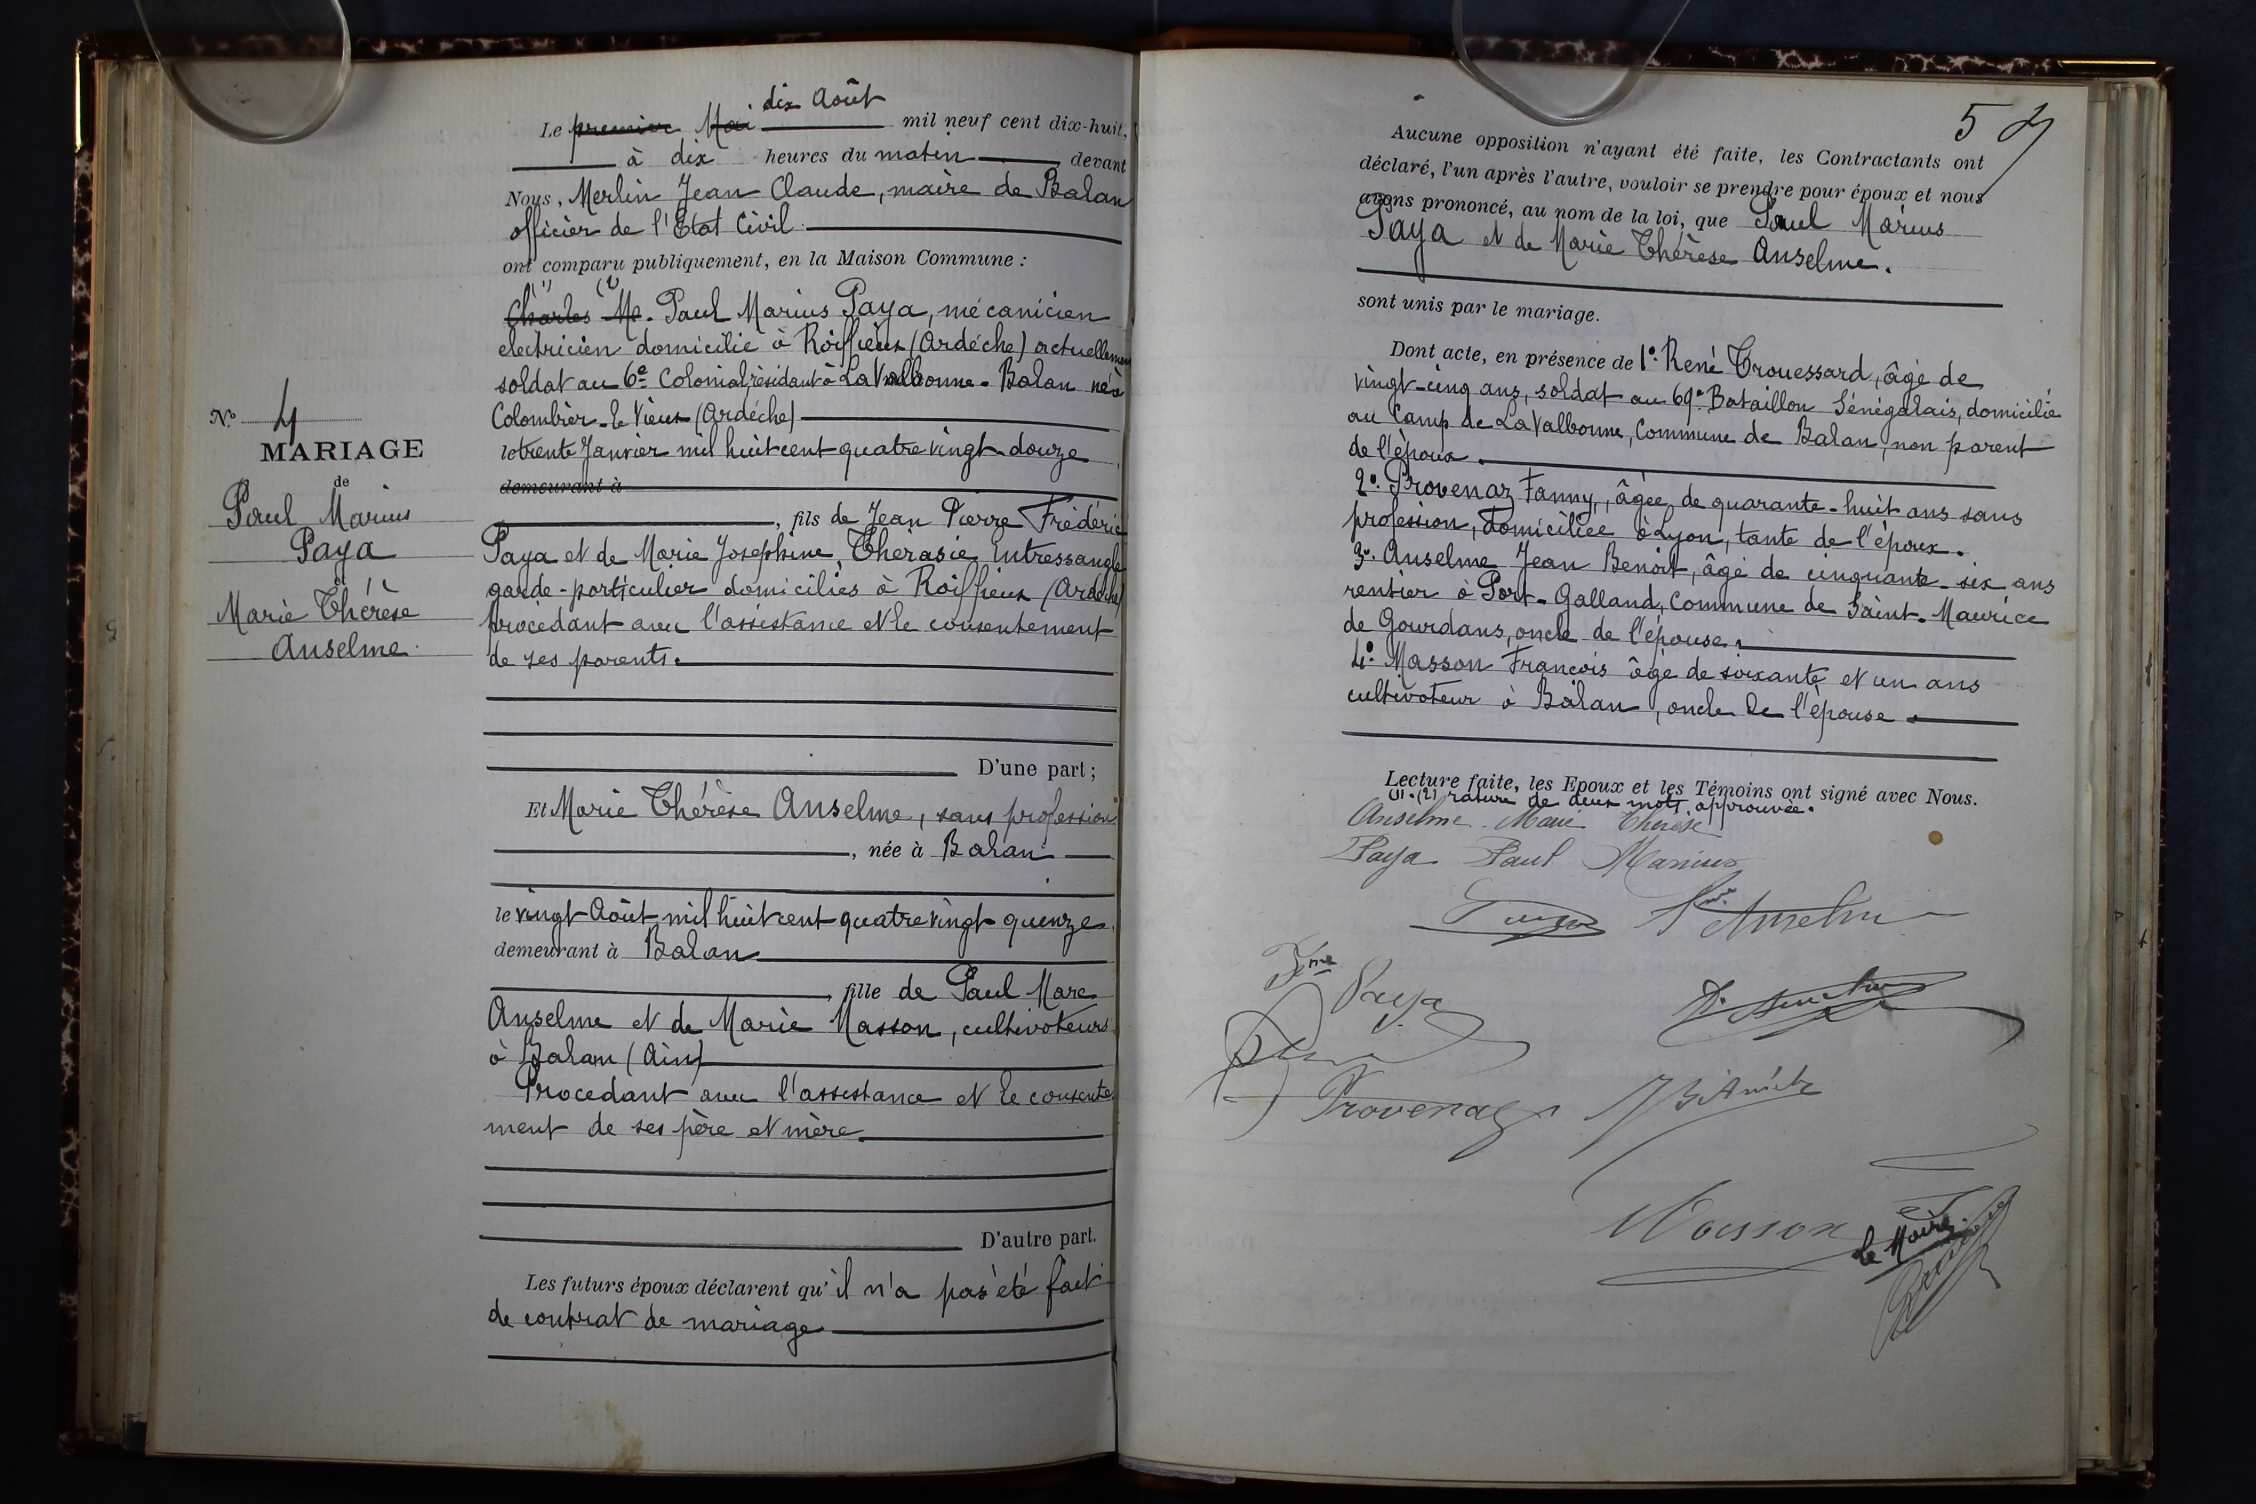 dix Août
Le premier Mai mil neuf cent dix-huit,
à dix heures du matin devant
Nous, Merlin Jean Claude, maire de Balan
officier de l'Etat Civil
ont comparu publiquement, en la Maison Commune :
(1) (2)
Charles Me. Paul Marius Paya, mécanicien
electricien domicilié à Roiffieux (Ardéche) actuellement
soldat au 6e Colonial résidant à La Valbonne-Balan né à
Colombier-le Vieux (Ardéche)
le trente Janvier mil huit cent quatre vingt-douze
demeurant à
, fils de Jean Pierre Frédéric
Paya et de Marie Josephine Thérasie Entressangle
garde-particulier domiciliés à Roiffieux (Ardéche)
procédant avec l'assistance et le consentement
de ses parents.
D'une part ;
Et Marie Thérèse Anselme, sans profession
, née à Balan
le vingt Août mil huit cent quatre vingt quinze
demeurant à Balan
, fille de Paul Marc
Anselme et de Marie Masson, cultivateurs
à Balan (Ain)
Procedant avec l'assistance et le consente
ment de ses père et mère
D'autre part.
Les futurs époux déclarent qu'il n'a pas été fait
de contrat de mariage
No 4
MARIAGE
de
Paul Marius
Paya
et
Marie Thérèse
Anselme
5
Aucune opposition n'ayant été faite, les Contractants ont
déclaré, l'un après l'autre, vouloir se prendre pour époux et nous
avons prononcé, au nom de la loi, que Paul Marius
Paya et de Marie Thérèse Anselme.
sont unis par le mariage.
Dont acte, en présence de 1o. René Trouessard, âgé de
vingt-cinq ans, soldat au 69e Bataillon Sénégalais, domicilié
au Camp de La Valbonne, Commune de Balan, non parent
de l'époux.
2o. Provenaz Fanny, âgée de quarante-huit ans sans
profession, domiciliée à Lyon, tante de l'époux.
3o. Anselme Jean Benoit, âgé de cinquante-six ans
rentier à Port-Galland, Commune de Saint-Maurice
de Gourdans, oncle de l'épouse.
4o. Masson François âgé de soixante et un ans
cultivateur à Balan, oncle de l'épouse.
Lecture faite, les Epoux et les Témoins ont signé avec Nous.
(1).(2) rature de deux mots approuvée.
Anselme Marie Thérèse
Paya Paul Marius
Anselme
Paya
Provenaz
Masson
Le Maire